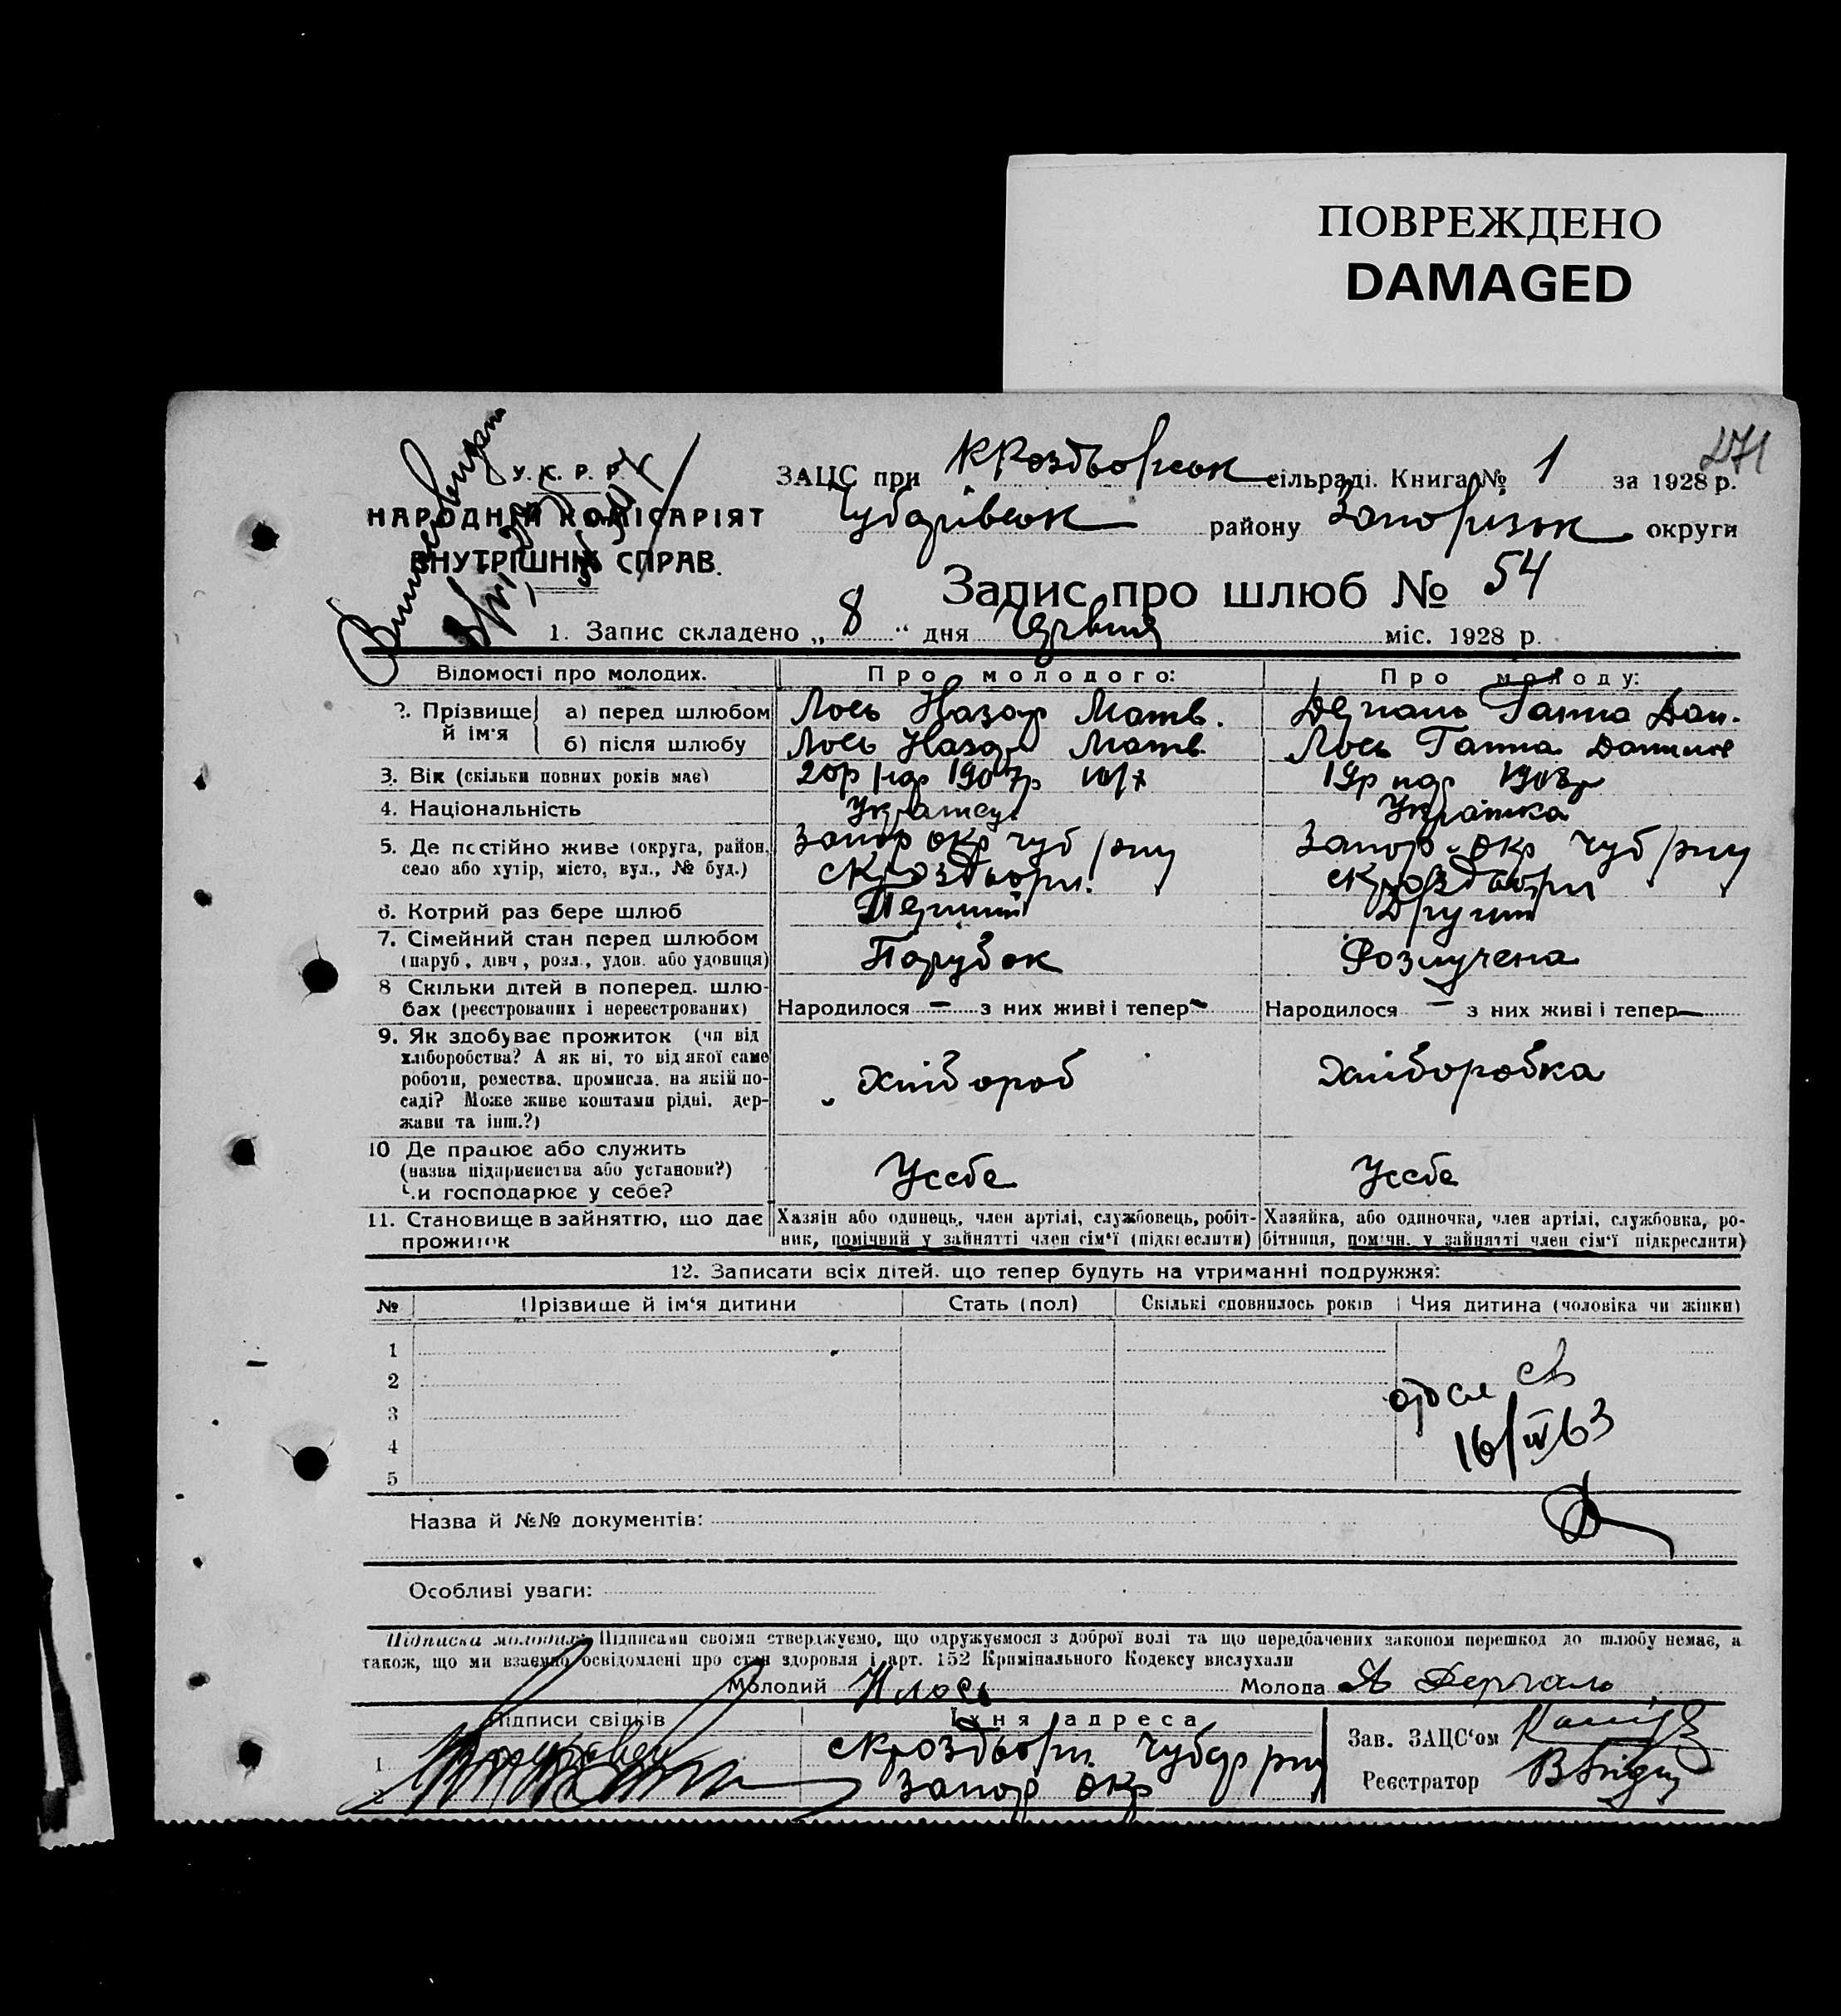 ПОВРЕЖДЕНО
DAMAGED
271
У. С. Р. Р.
НАРОДНІЙ КОМІСАРІЯТ
ВНУТРІШНІХ СПРАВ.
ЗАЦС при сільраді. Книга № 1 за 1928 р.
Чубарівськ району Запорізьк округи
Запис про шлюб № 54
1. Запис складено „ 8 “ дня Червня міс. 1928 р.
Відомості про молодих.
Про молодого:
Про молоду:
2. Прізвище й ім'я
а) перед шлюбом
Лось Назар Матв.
Ганна Дан.
б) після шлюбу
Лось Назар Матв.
Лось Ганна
3. Вік (скільки повних років має)
20р нар 1907р
19р нар 1908р
4. Національність
Українець
Українка
5. Де постійно живе (округа, район,
село або хутір, місто, вул., № буд.)
Запор окр Чуб рну
с Кроздвори.
Запор. окр Чуб рну
с Кроздвори
6. Котрий раз бере шлюб
Перший
Другий
7. Сімейний стан перед шлюбом
(паруб., дівч., розл., удов. або удовиця)
Парубок
Розлучена
8 Скільки дітей в поперед. шлю-
бах (реєстрованих і нереєстрованих)
Народилося — з них живі і тепер —
Народилося — з них живі і тепер —
9. Як здобуває прожиток (чи від
хліборобства? А як ні, то від якої саме
роботи, ремества, промисла, на якій по-
саді? Може живе коштами рідні, дер-
жави та інш.?)
Хлібороб
Хліборобка
10 Де працює або служить
(назва підприємства або установи?)
Чи господарює у себе?
Усебе
Усебе
11. Становище в зайняттю, що дає
прожиток
Хазяін або одинець, член артілі, службовець, робіт-
ник, помічний у зайнятті член сім'ї (підкреслити)
Хазяйка, або одиночка, член артілі, службовка, ро-
бітниця, помічн. у зайнятті член сім'ї підкреслити)
12. Записати всіх дітей, що тепер будуть на утриманні подружжя:
№ Прізвище й ім'я дитини Стать (пол) Скількі сповнилось років Чия дитина (чоловіка чи жінки)
1
2
3
4
5
16/IV 63
Назва й №№ документів:
Особливі уваги:
Підписка молодих: Підписами своїми стверджуємо, що одружуємося з доброї волі та що передбачених законом перешкод до шлюбу немає, а
також, що ми взаємно освідомлені про стан здоровля і арт. 152 Кримінального Кодексу вислухали
Молодий Н Лось Молода
Підписи свідків
Їхня адреса
1
2
с Кроздвори Чубар рну
Запор окр
Зав. ЗАЦС'ом
Реєстратор